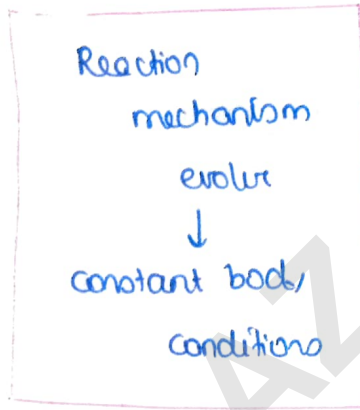 Reaction
mechanism
evolve
↓
constant body
conditions
AZ